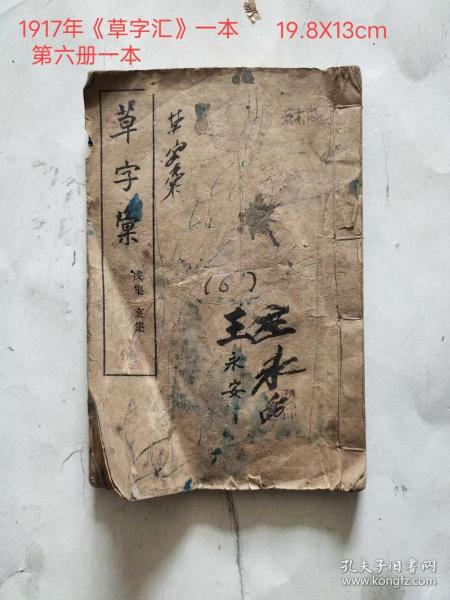 1917年《草字汇》一本 19.8X13cm
第六册一本
草字彙
戌集 亥集
草字彙
(6)
王永安
王永
孔夫子旧书网
www.kongfz.com